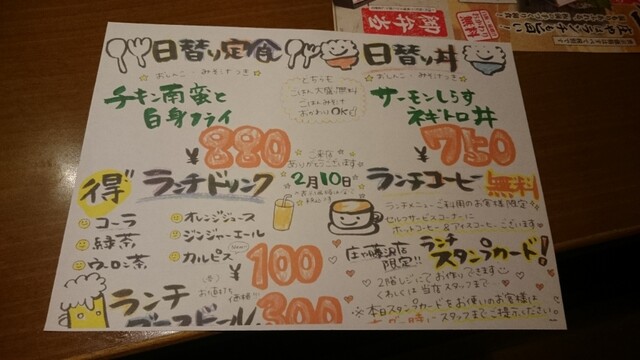 御弁当
日替り定食
おしんこ・みそ汁つき
チキン南蛮と
白身フライ
¥880
どちらも
ごはん大盛無料
ごはんみそ汁
おかわりOK
日替り丼
おしんこ・みそ汁つき
サーモンしらす
ネギトロ丼
¥750
ご来店
ありがとうございます
2月10日
得 ランチドリンク
コーラ
緑茶
ウーロン茶
オレンジジュース
ジンジャーエール
カルピス
¥100
ランチコーヒー 無料
ランチメニューご利用のお客様限定
セルフサービスコーナーに
ホットコーヒー&アイスコーヒーございます
庄や藤沢店
限定!!
ランチ
スタンプカード!
2階レジにてお作りできます
くわしくは当店スタッフまで
※本日スタンプカードをお使いのお客様は
スタッフまでご提示ください
ランチ
300